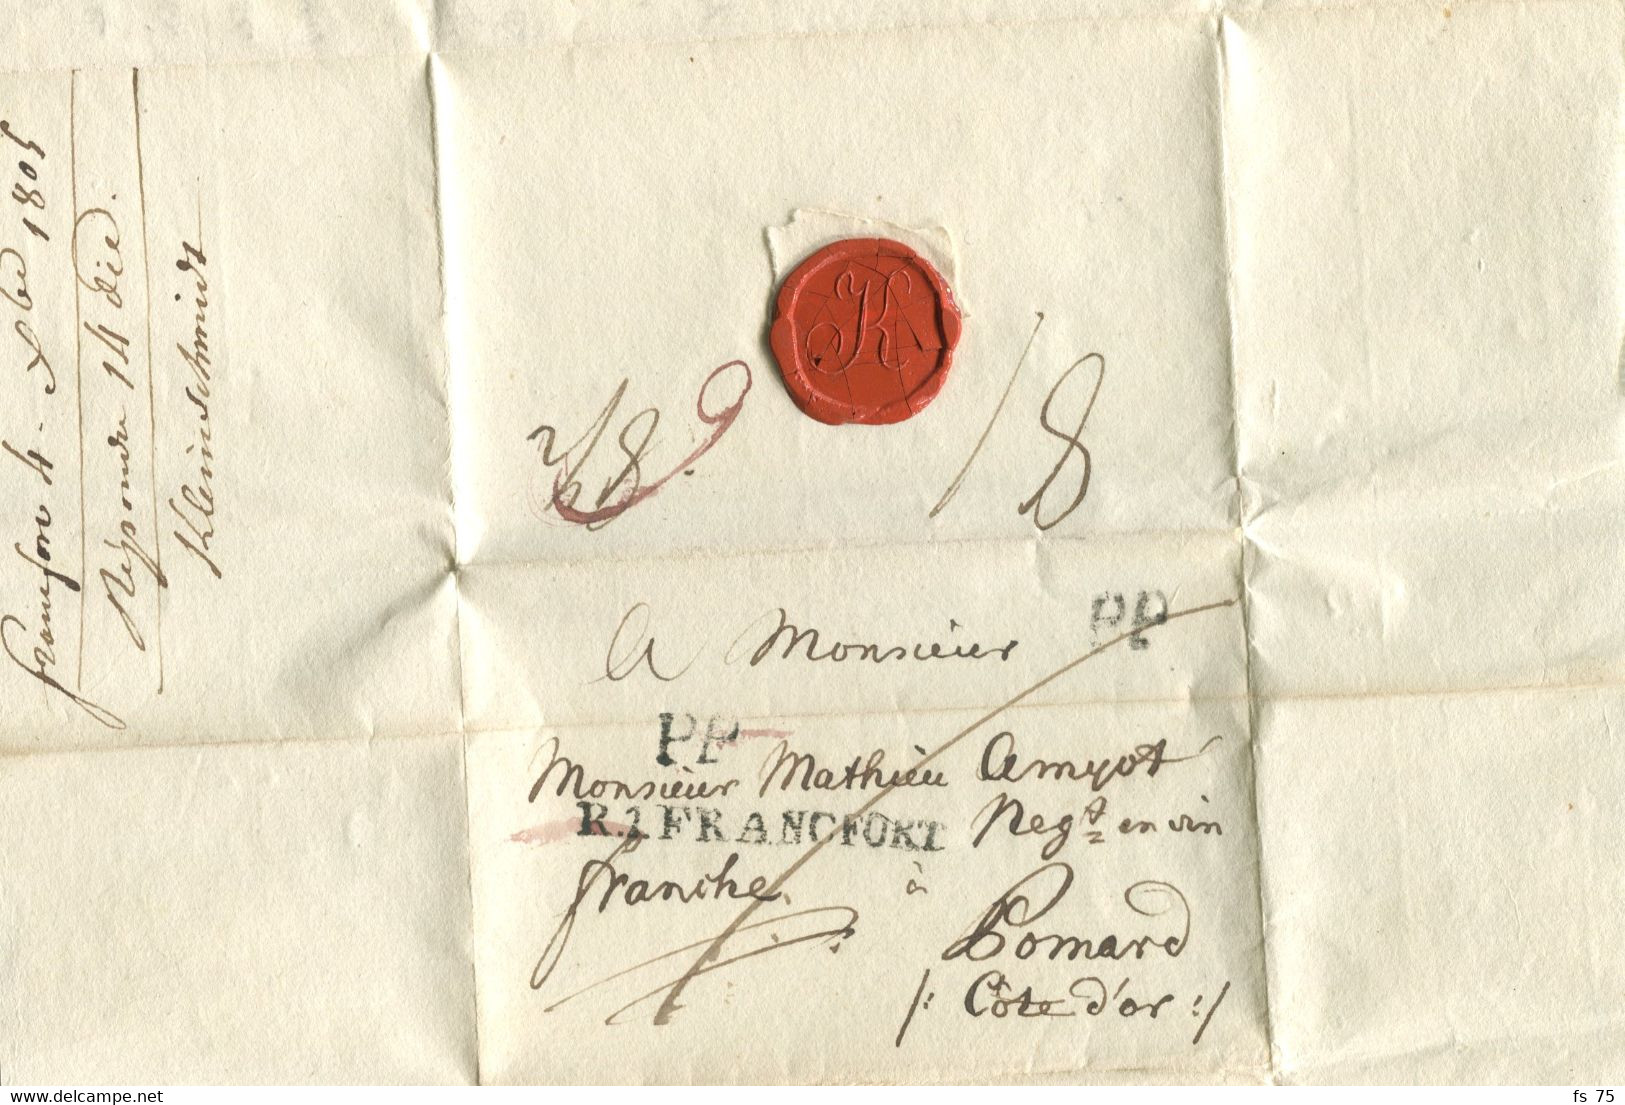 francfort 4 - Xbre 1805
Répondu 14 dud.
Kleinschmidt
K
2/18 9
18
PP
A Monsieur
PP
Monsieur Mathieu Amyot
R.1 FRANCFORT
Negt en vin
franche
à
Pomard
/: Côte d'or :/
delcampe.net
fs_75